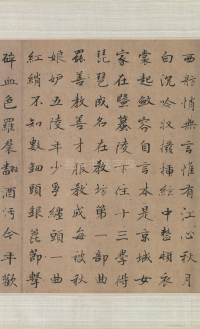 西舫悄無言惟有江心秋月
白沉吟收撥插絃中整頓衣
裳起斂容自言本是京城女
家在蝦蟇陵下住十三學得
琵琶成名在教坊第一部曲
罷善教善才服教成每被秋
娘妒五陵年少爭纏頭一曲
紅綃不知數鈿頭銀篦節擊
碎血色羅裙翻酒污今年歡